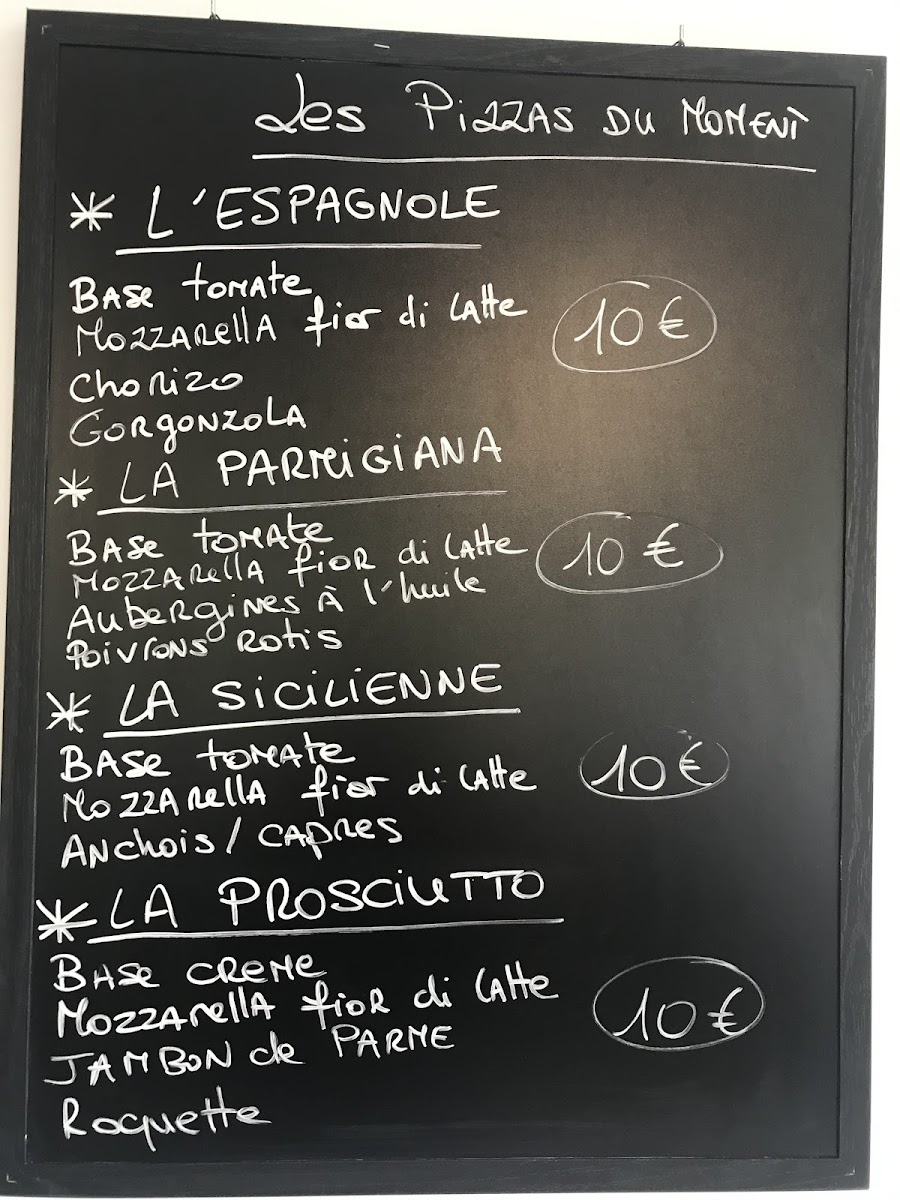 Les Pizzas du Moment
* L'ESPAGNOLE
Base tomate
Mozzarella fior di latte
10 €
Chorizo
Gorgonzola
* LA PARMIGIANA
Base tomate
Mozzarella fior di latte
10 €
Aubergines à l'huile
Poivrons rotis
* LA SICILIENNE
Base tomate
Mozzarella fior di latte
10 €
Anchois / capres
* LA PROSCIUTTO
Base creme
Mozzarella fior di latte
10 €
JAMBON de PARME
Roquette